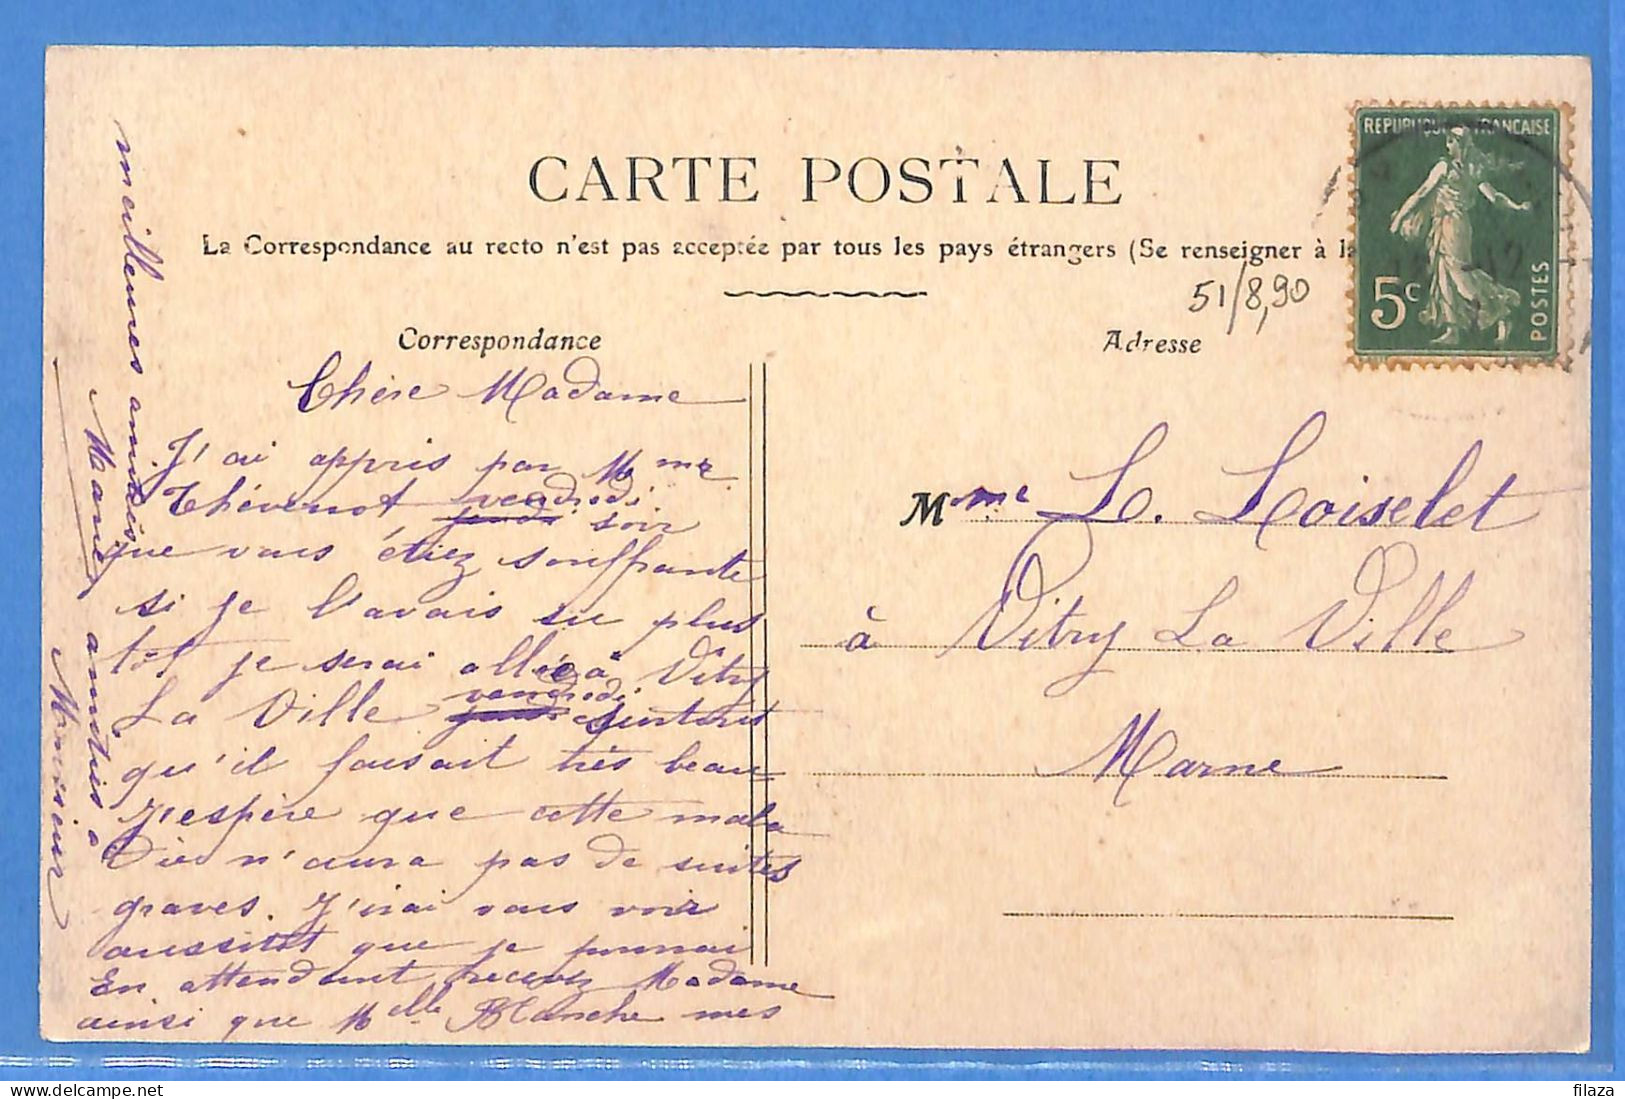 CARTE POSTALE
La Correspondance au recto n'est pas acceptée par tous les pays étrangers (Se renseigner à la
51/8,90
REPUBLIQUE FRANCAISE
5c
POSTES
Correspondance
Adresse
Chère Madame
J'ai appris par Mme
Thévenot vendredi soir
que vous étiez souffrante
si je l'avais su plus
tôt je serai allée à Vitry
La Ville vendredi
qu'il faisait très beau
J'espère que cette mala
die n'aura pas de suites
graves. J'irai vous voir
aussitôt que je pourrai
En attendant recevez Madame
ainsi que Melle Blanche mes
meilleures amitiés
Marie
amitiés a
Monsieur
Mme L. Loiselet
à Vitry La Ville
Marne
filaza